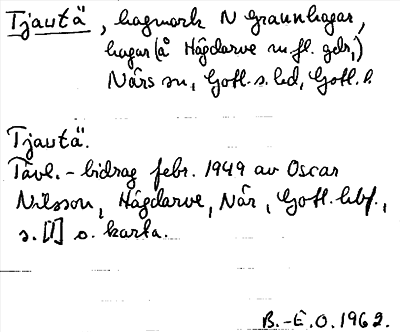 Tjautä, hagmark N Graunhagar,
hagar (å Hågdarve m.fl. gdr,)
Närs sn, Gotl. s. hd, Gotl. l.
Tjautä.
Tävl.-bidrag febr. 1949 av Oscar
Nilsson, Hågdarve, När, Gotl. hbf.,
s. [1] o. karta.
B.-E.O. 1962.